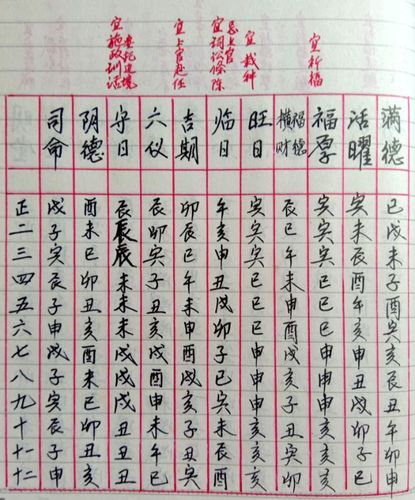 宜施政训话
安抚边境
宜上官赴任
忌上官
宜词讼条陈
宜栽种
宜祈福
司命 阴德 守日 六仪 吉期 临日 旺日 福德横财 福厚 活曜 满德
正 戌 酉 辰 辰 卯 午 寅 辰 寅 寅 巳
二 子 未 辰 卯 辰 亥 寅 巳 寅 未 戌
三 寅 巳 辰 寅 巳 申 寅 午 寅 辰 未
四 辰 卯 未 子 午 丑 巳 未 巳 酉 子
五 子 丑 未 丑 未 戌 巳 申 巳 午 酉
六 申 亥 未 亥 申 卯 巳 酉 巳 亥 寅
七 戌 酉 戌 戌 酉 子 申 戌 申 申 亥
八 子 未 戌 酉 戌 巳 申 亥 申 丑 辰
九 寅 巳 戌 申 亥 寅 申 子 申 戌 丑
十 辰 卯 丑 未 子 未 亥 丑 亥 卯 午
十一 子 丑 丑 午 丑 辰 亥 寅 亥 子 卯
十二 申 亥 丑 巳 寅 酉 亥 卯 亥 巳 申